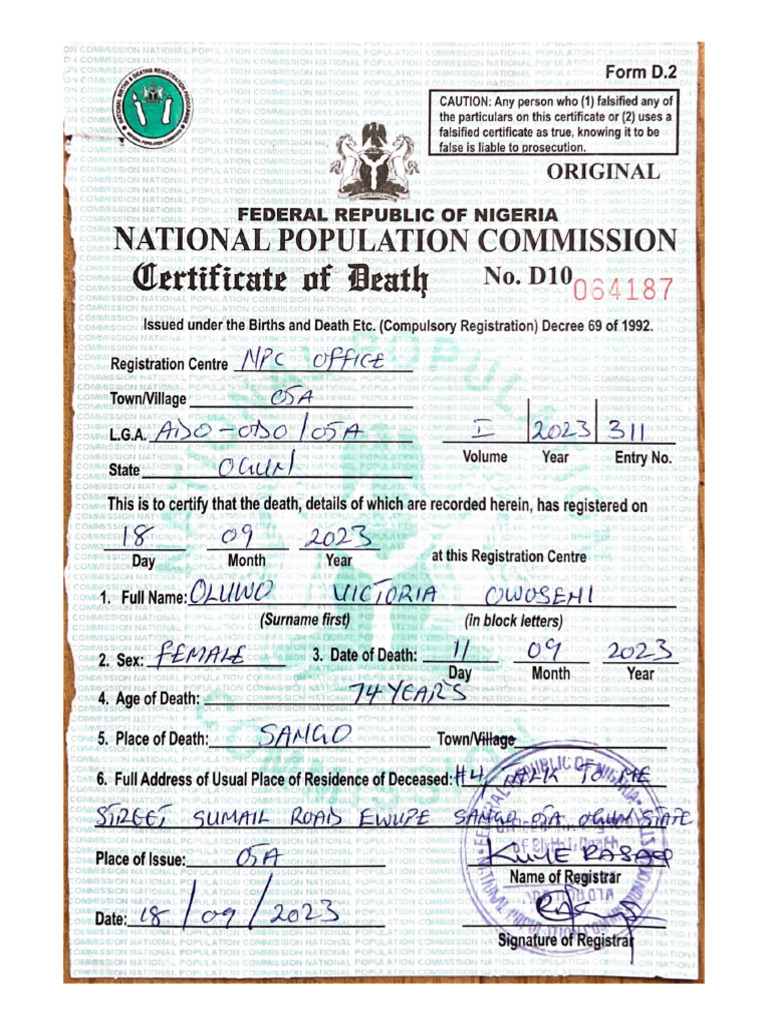 Form D.2
CAUTION: Any person who (1) falsified any of
the particulars on this certificate or (2) uses a
falsified certificate as true, knowing it to be
false is liable to prosecution.
ORIGINAL
FEDERAL REPUBLIC OF NIGERIA
NATIONAL POPULATION COMMISSION
Certificate of Death No. D10 064187
Issued under the Births and Death Etc. (Compulsory Registration) Decree 69 of 1992.
Registration Centre NPC OFFICE
Town/Village OTA
L.G.A. ADO-ODO/OTA I 2023 311
Volume Year Entry No.
State OGUN
This is to certify that the death, details of which are recorded herein, has registered on
18 09 2023 at this Registration Centre
Day Month Year
1. Full Name: OLUWO VICTORIA OWOSENI
(Surname first) (in block letters)
2. Sex: FEMALE 3. Date of Death: 11 09 2023
Day Month Year
4. Age of Death: 74 YEARS
5. Place of Death: SANGO Town/Village
6. Full Address of Usual Place of Residence of Deceased: #4, TALK TO ME
STREET SUMAIL ROAD EWUPE SANGO OTA OGUN STATE
Place of Issue: OTA
Name of Registrar
Date: 18/09/2023
Signature of Registrar